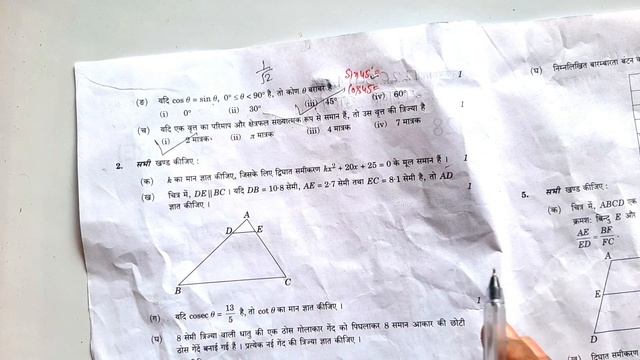 1
√2
sin45=
cos45=
(ङ) यदि cos θ = sin θ, 0° ≤ θ < 90° है, तो कोण θ बराबर है
1
(i) 0° (ii) 30° (iii) 45° (iv) 60°
(च) यदि एक वृत्त का परिमाप और क्षेत्रफल संख्यात्मक रूप से समान है, तो उस वृत्त की त्रिज्या है
1
(i) 2 मात्रक (ii) π मात्रक (iii) 4 मात्रक (iv) 7 मात्रक
2. सभी खण्ड कीजिए :
(क) k का मान ज्ञात कीजिए, जिसके लिए द्विघात समीकरण kx² + 20x + 25 = 0 के मूल समान हैं । 1
(ख) चित्र में, DE || BC । यदि DB = 10·8 सेमी, AE = 2·7 सेमी तथा EC = 8·1 सेमी है, तो AD 1
ज्ञात कीजिए ।
A
D E
B C
(ग) यदि cosec θ = 13/5 है, तो cot θ का मान ज्ञात कीजिए । 1
(घ) 8 सेमी त्रिज्या वाली धातु की एक ठोस गोलाकार गेंद को पिघलाकर 8 समान आकार की छोटी
ठोस गेंदें बनाई गई हैं । प्रत्येक नई गेंद की त्रिज्या ज्ञात कीजिए ।
(घ) निम्नलिखित बारम्बारता बंटन
5. सभी खण्ड कीजिए :
(क) चित्र में, ABCD एक
क्रमशः बिन्दु E और
AE/ED = BF/FC
A
E
D